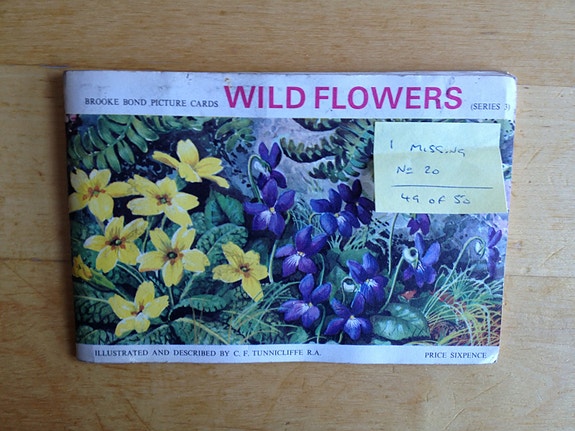 BROOKE BOND PICTURE CARDS WILD FLOWERS (SERIES 3)
1 MISSING
No 20
49 OF 50
ILLUSTRATED AND DESCRIBED BY C. F. TUNNICLIFFE R.A. PRICE SIXPENCE